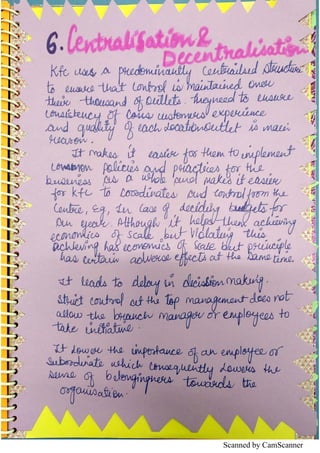 6. Centralisation &
Decentralisation
Kfc uses a predominantly Centralised structure
to ensure that Control is maintained over
their thousand of outlets. they need to ensure
consistency of customers experience
and quality of each location outlet is main
reason.
It makes it easier for them to implement
common policies and practices for the
business as a whole and makes it easier
for kfc to coordinates and control from the
Centre, Eg, In case of deciding budgets for
an year Although it helps them achieving
economics of scale but Violating this
achieving has economics of scale but principle
has certain adverse effects at the same time.
It leads to delay in decission making.
Strict control at the Top management does not
allow the branch manager or employees to
take initiative.
It Lower the importance of an employee or
Subordinate which consequently Lowers the
sense of belongingness towards the
organisation.
Scanned by CamScanner